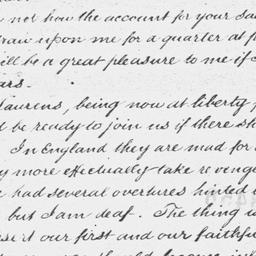 not how the account for your sa
draw upon me for a quarter at p
will be a great pleasure to me if
ars.
Laurens, being now at liberty
be ready to join us if there sh
In England they are mad for
more effectually take revenge
had several overtures hinted
but I am deaf. The thing is
our first and our faithfu